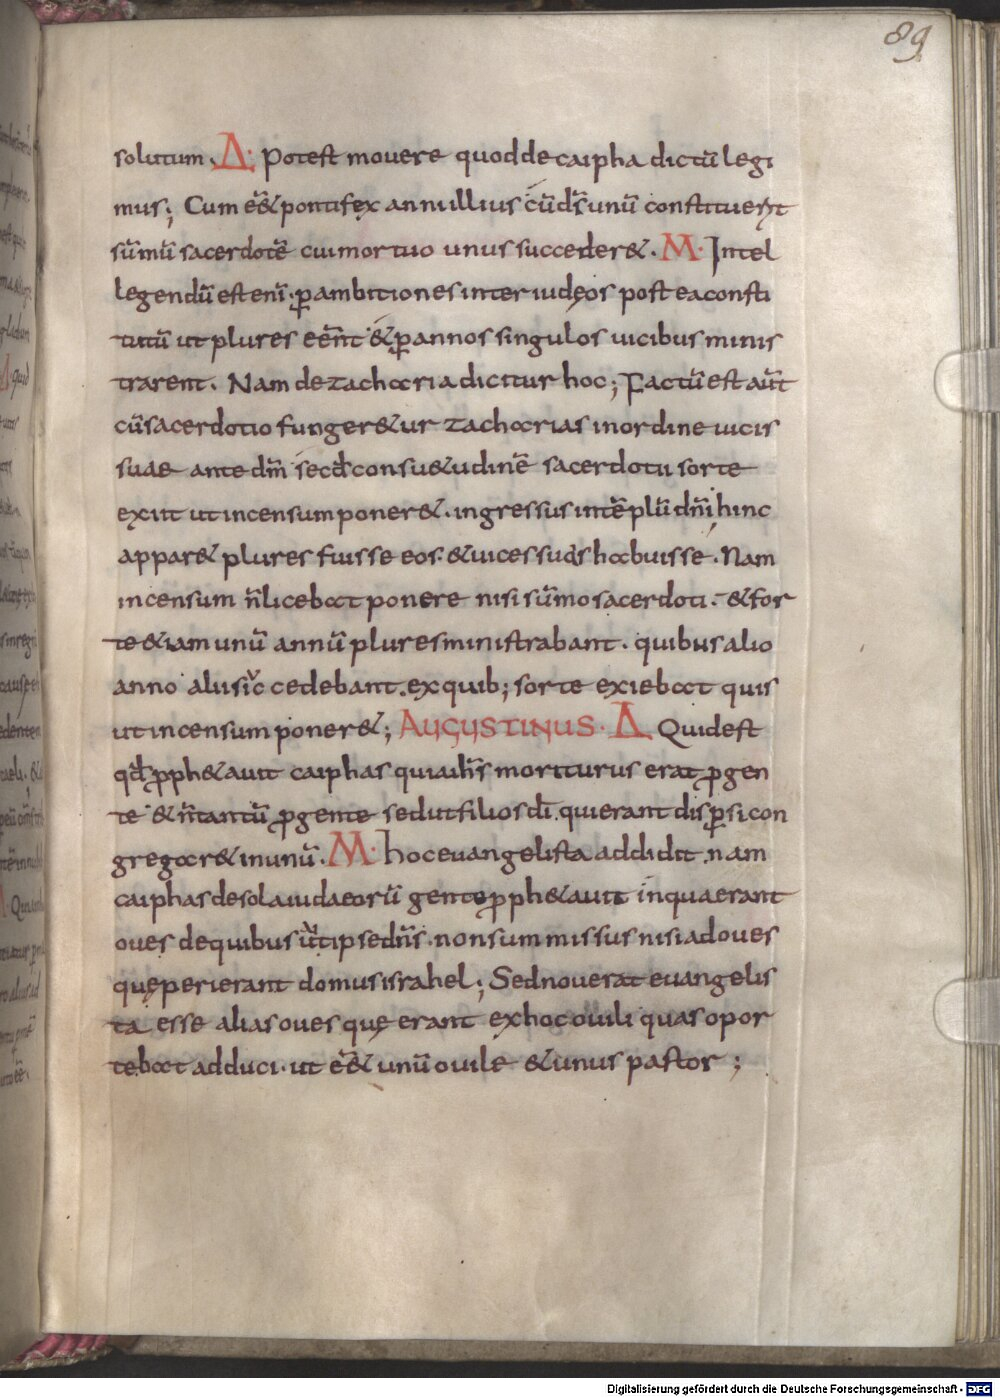 89
solutum. Δ· Potest movere quod de caipha dictū legi
mus; Cum eēt& pontifex anni illius cū dſ unū constituerit
sūmū sacerdotē cui mortuo unus succeder&. M· Intel
legendū est enī. ꝑ ambitiones inter iudęos postea consti
tutū ut plures eēnt & ꝑ annos singulos vicibus minis
trarent. Nam de zacharia dicitur hoc; Factū est aūt
cū sacerdotio funger&ur zacharias in ordine vicis
suae ante dm̄ secd̄ consu&udinē sacerdotii sorte
exiit ut incensum poner&. ingressus in tēplū dn̄i hinc
appar& plures fuisse eos. & vices suas habuisse. Nam
incensum n̄ licebat ponere nisi sūmo sacerdoti. & for
te &iam unū annū plures ministrabant. quibus alio
anno alii sic̄ cedebant. ex quib; sorte exiebat quis
ut incensum poner&; AUGUSTINUS. Δ Quid est
qd̄ ꝓph&avit caiphas quia ih̄s moriturus erat ꝓ gen
te & n̄ tantū ꝓ gente sed ut filios dī qui erant disꝑsi con
gregar& in unū. M· hoc evangelista addidit nam
caiphas de sola iudaeorū gente ꝓph&avit in qua erant
oves de quibus ūt ipse dn̄s. non sum missus nisi ad oves
quę perierant domus israhel; Sed noverat evangelis
ta esse alias oves quę erant ex hoc ovili quas opor
tebat adduci. ut eē& unū ovile & unus pastor;
Digitalisierung gefördert durch die Deutsche Forschungsgemeinschaft - DFG